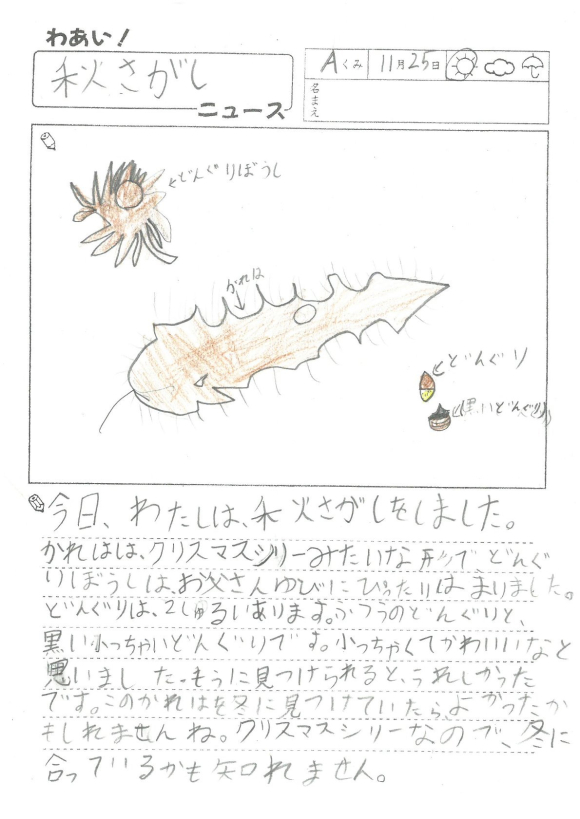 わあい！
秋さがし
ニュース
Aくみ 11月25日
名まえ
どんぐりぼうし
かれは
どんぐり
黒いどんぐり
今日、わたしは、秋さがしをしました。
かれはは、クリスマスツリーみたいな形で、どんぐ
りぼうしは、お父さんゆびにぴったりはまりました。
どんぐりは、2しゅるいあります。ふつうのどんぐりと、
黒い小っちゃいどんぐりです。小っちゃくてかわいいなと
思いました。もうに見つけられると、うれしかった
です。このかれはを冬に見つけていたら、よかったか
もしれませんね。クリスマスシリーなので、冬に
合っているかも知れません。